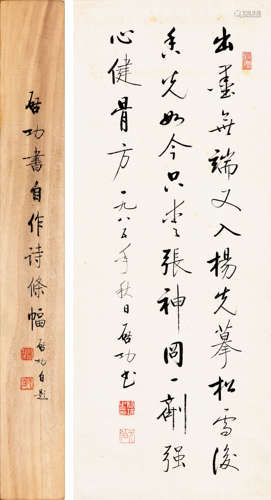 出墨無端又入楊先摹松雪後
香光如今只愛張神冏一劑强
心健骨方 一九八五年秋日 啓功書
啓功書自作詩條幅 啓功自題